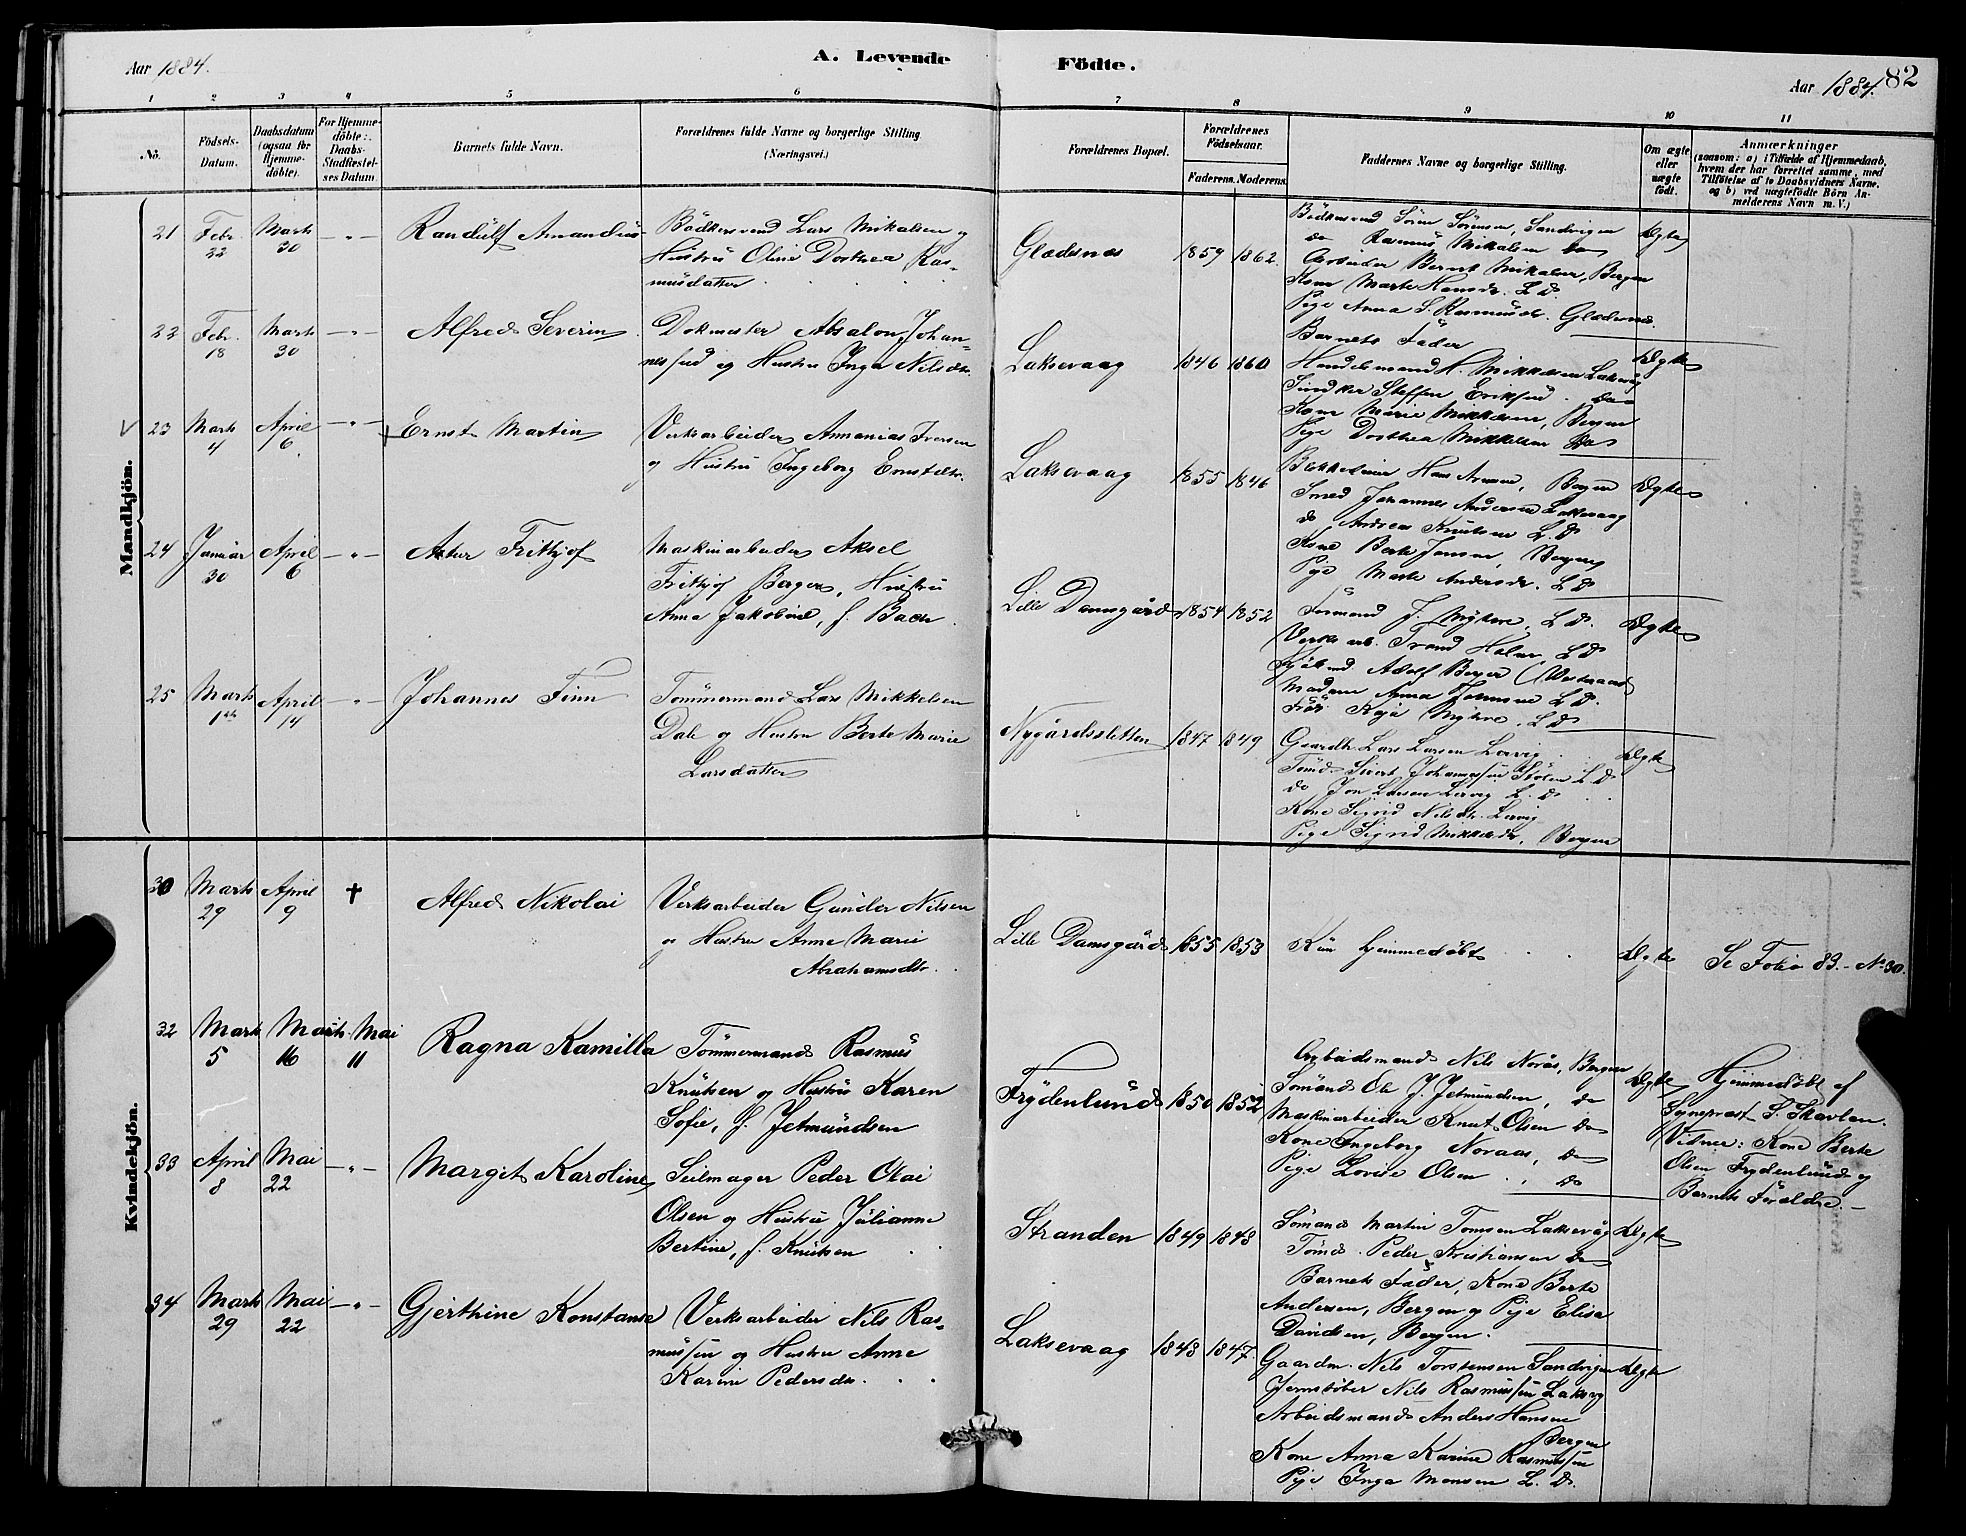 Aar 1884.
A. Levende Födte.
Aar 1884.
82
1 2 3 4 5 6 7 8 9 10 11
No.
Födsels-Datum.
Daabsdatum (ogsaa for Hjemme-döbte).
For Hjemme-döbte: Daabs-Stadfæstel-ses Datum.
Barnets fulde Navn.
Forældrenes fulde Navne og borgerlige Stilling.
(Næringsvei.)
Forældrenes Bopæl.
Forældrenes Födselsaar.
Faderens. Moderens.
Faddernes Navne og borgerlige Stilling.
Om ægte eller uægte födt.
Anmærkninger
(saasom: a) i Tilfælde af Hjemmedaab,
hvem der har forrettet samme, med
Tilföielse af to Daabsvidners Navne,
og b) ved uægtefödte Börn An-
melderens Navn m. V.)
Mandkjön.
21 Febr. 22 Marts 30 — " — Randulf Amandus
Bödkersvend Lars Mikalsen og
Hustru Oline Dorthea Ras-
musdatter
Glædesnæs 1859 1862
Bödkersvend Sören Sörensen, Sandvigen
do Rasmus Mikalsen do
Arbeider Bernt Mikalsen, Bergen
Kone Marte Hansdr. L. D.
Pige Anna S. Rasmusdr. Glædesnæs
Barnets Fader
Ægte
22 Febr. 18 Marts 30 — " — Alfred Severin
Dokmester Absalon Johan-
nessen og Hustru Inga Nilsdr.
Laksevaag 1846 1860
Handelsmand H. Mikkelsen Laksevåg
Steffen Eriksen do
Kone Marie Mikkelsen, Bergen
Pige Dorthea Mikkelsen do
Ægte
23 Marts 4 April 6 — " — Ernst Martin
Verksarbeider Annanias Iversen
og Hustru Ingeborg Ernstdtr.
Laksevaag 1855 1846
Hans Bergen
Smed Johannes Andersen Laksevaag
do Andreas Knutsen L. D.
Kone Berte Jansen, Bergen
Pige Marte Andersdr. L. D.
Ægte
24 Januar 30 April 6 — " — Astur Frithjof
Maskinarbeider Aksel
Frithjof Berger, Hustru
Anna Jakobine, f. Bach
Lille Damsgård 1854 1852
Formand J. Myhre, L. D.
Verks arb. Trond L. D.
Adolf Berger
Madam Anna L. D.
Kaja Myhre, L. D.
Ægte
25 Marts 1ste April 14 — " — Johannes Finn
Tømmermand Lars Mikkelsen
Dale og Hustru Berte Marie
Larsdatter
Nygårdssletten 1847 1849
Gaardbr. Lars Larsen Lervig
Tömd. Sivert Johannessen Stölen L. D.
do Jon Larsen Lervig L. D.
Kone Sigrid Nilsdtr. Lervig
Pige Sigrid Mikkelsdr, Bergen
Ægte
Kvindekjön.
30 Marts 29 April 9 † Alfred Nikolai
Verksarbeider Gunder Nilsen
og Hustru Anne Marie
Abrahamsdtr.
Lille Damsgård 1855 1853
Kun hjemmedöbt
Ægte
Se Folio 83. - No 30.
32 Marts 5 Marts 16 Mai 11 Ragna Kamilla
Tömmermand Rasmus
Knutsen og Hustru Karen
Sofie, f. Jetmundsen
Frydenlund 1850 1852
Arbeidsmand Nils Norås, Bergen
Sömand Ole J. Jetmundsen, do
Maskinarbeider Knut Olsen do
Kone Ingeborg Noraas, do
Pige Lovise Olsen do
Ægte
Hjemmedöbt af
Sogneprest S. Skavlan.
Vidner: Kone Berte
Olsen Frydenlund og
Barnets Forældre.
33 April 8 Mai 22 — " — Margit Karoline
Seilmager Peder Olai
Olsen og Hustru Julianne
Bertine, f. Knutsen
Stranden 1849 1848
Sömand Martin Tomsen Laksevåg
Tömd. Peder Kristiansen do
Barnets Fader, Kone Berte
Andersen, Bergen og Pige Elisa
Davidsen, Bergen.
Ægte
34 Marts 29 Mai 22 — " — Gjerthine Konstanse
Verksarbeider Nils Ras-
mussen og Hustru Anne
Karine Pedersdr.
Laksevaag 1848 1847
Gaardm. Nils Torstensen Sandvigen
Jernstöber Nils Rasmussen Laksevg
Arbeidsmand Anders Hansen
Bergen
Kone Anna Karine Rasmussen
Pige Inga Monsen L. D.
Ægte